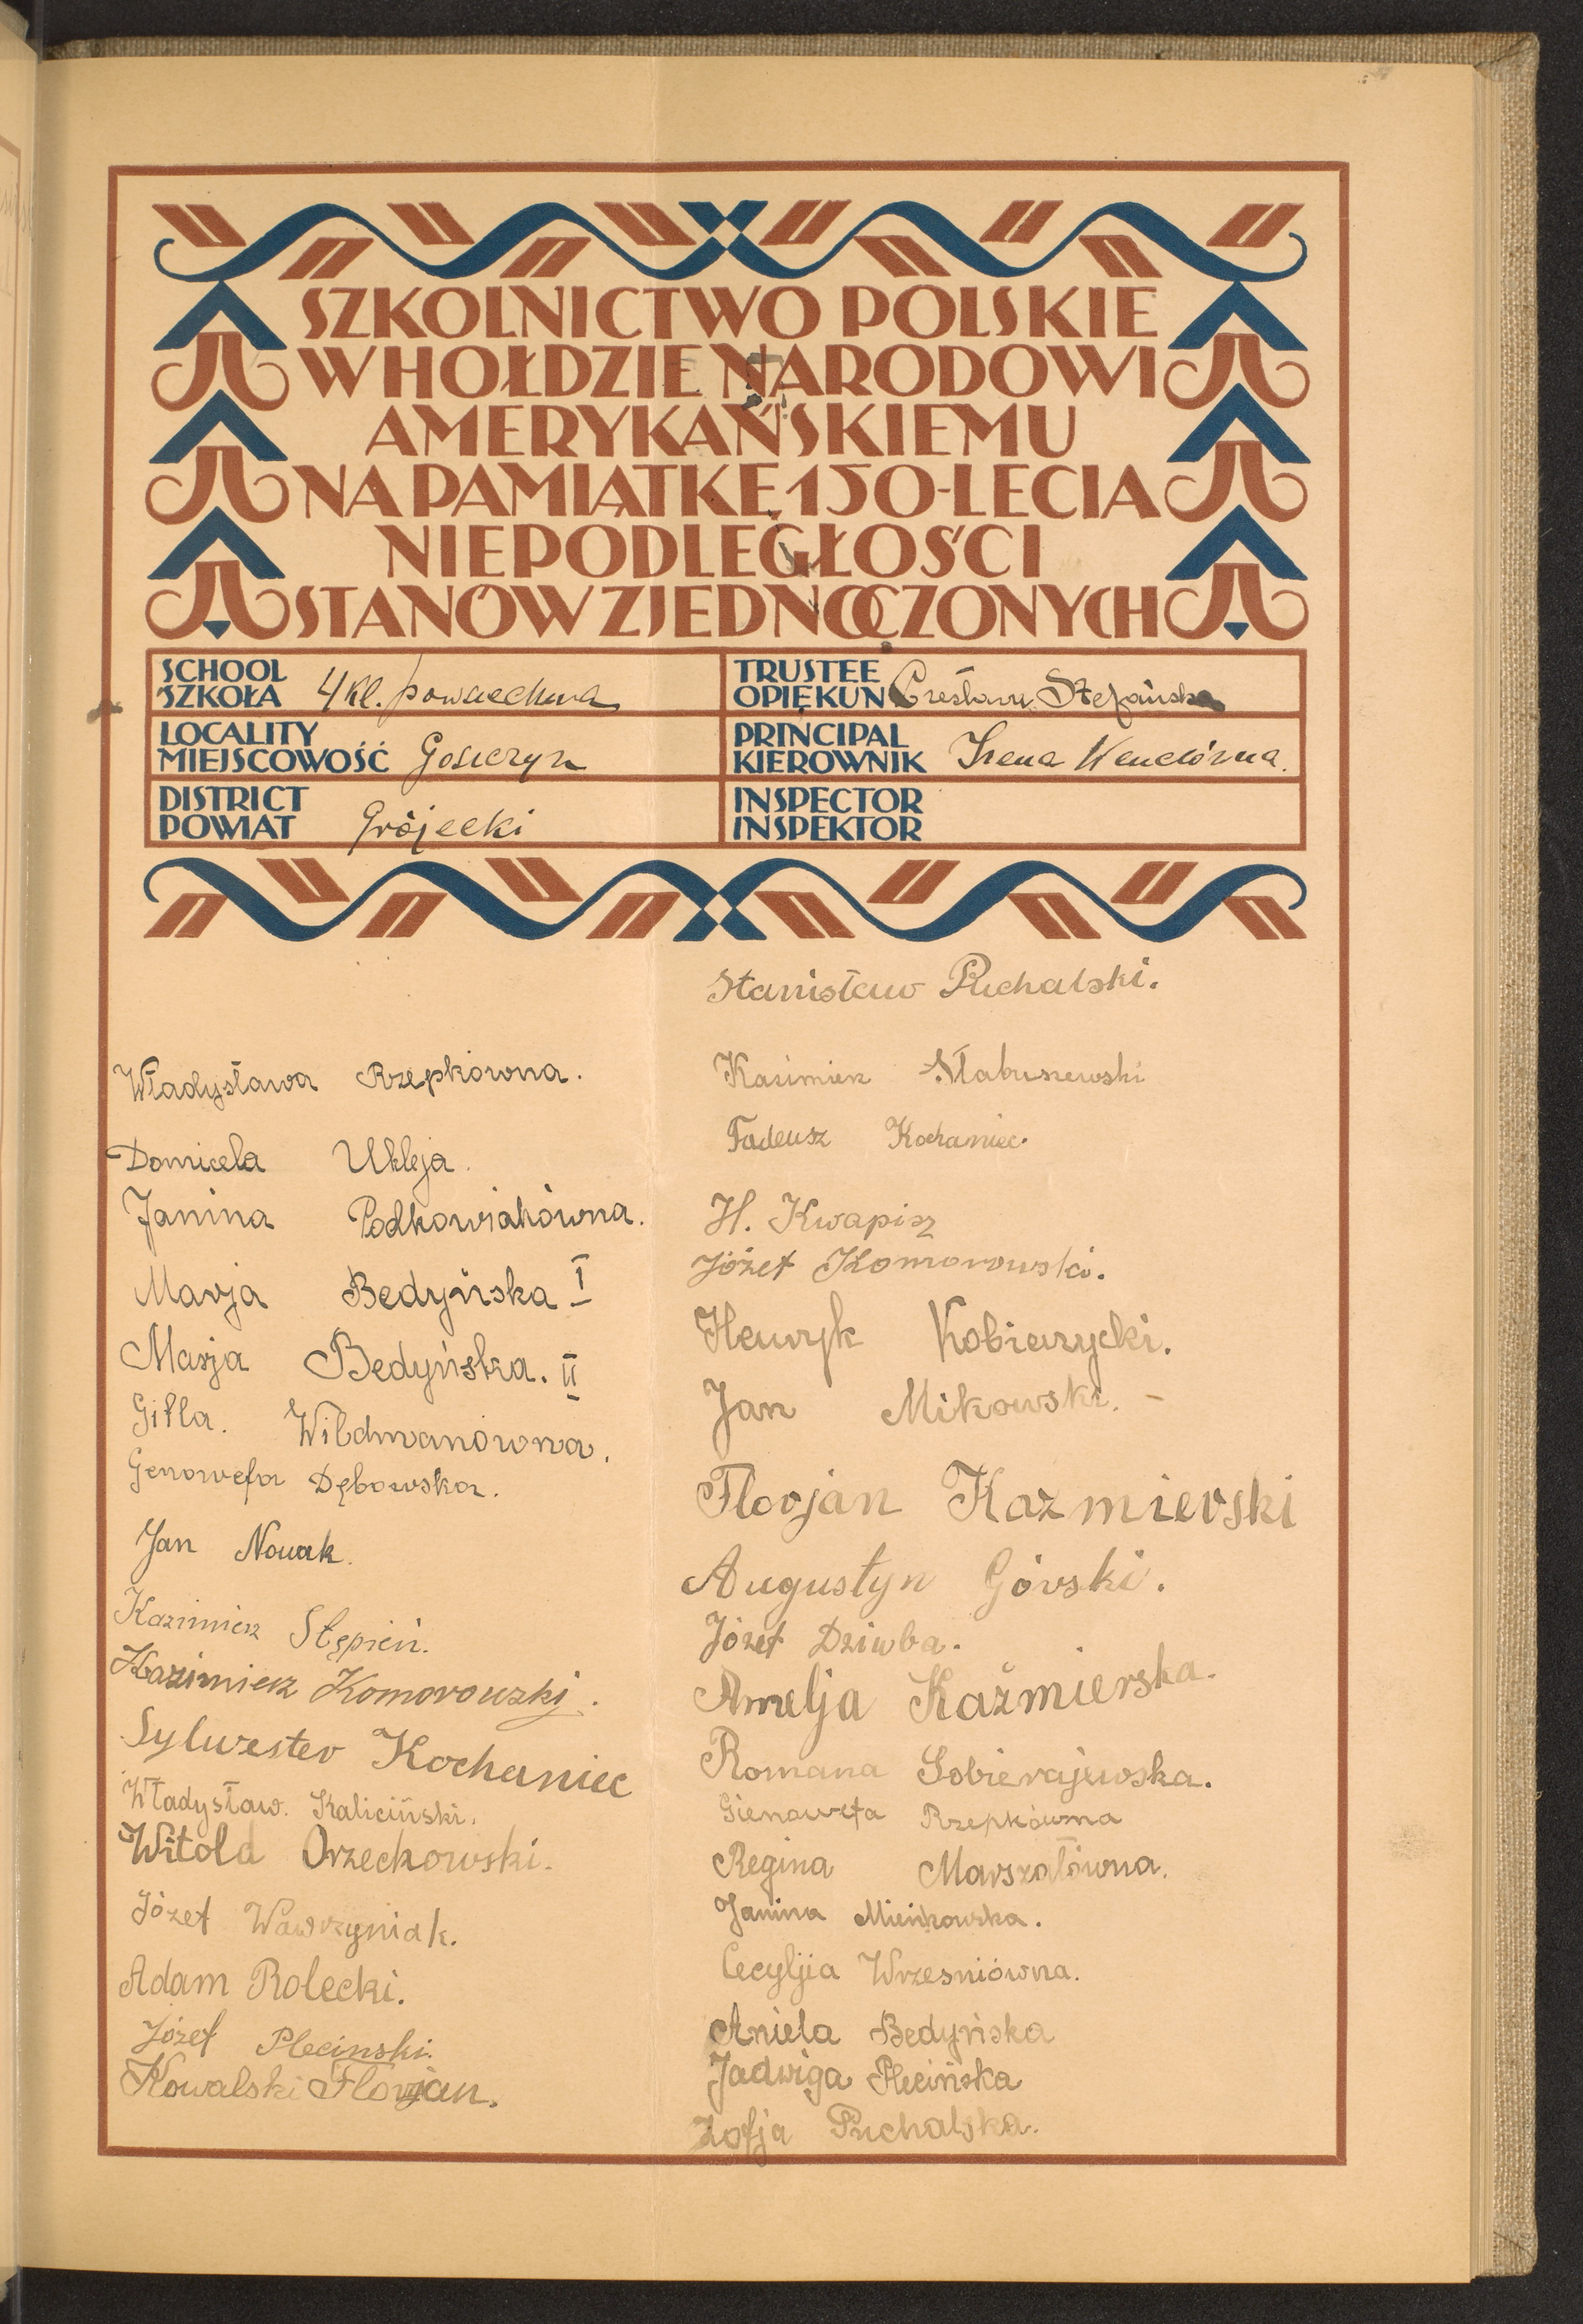 SZKOLNICTWO POLSKIE
W HOŁDZIE NARODOWI
AMERYKAŃSKIEMU
NA PAMIĄTKĘ 150-LECIA
NIEPODLEGŁOŚCI
STANÓW ZJEDNOCZONYCH
SCHOOL
SZKOŁA 4 kl. powszechna
TRUSTEE
OPIEKUN Czesława Stefańska
LOCALITY
MIEJSCOWOŚĆ Goszczyn
PRINCIPAL
KIEROWNIK Irena
DISTRICT
POWIAT Grójecki
INSPECTOR
INSPEKTOR
Władysława Rzepkówna.
Domicela Ukleja.
Janina Podkowiakówna.
Marja Bedyńska I
Marja Bedyńska. II
Gitla. Wildmanówna.
Genowefa Dębowska.
Jan Nowak.
Kazimierz Stępień.
Kazimierz Komorowski.
Sylwester Kochaniec
Władysław. Kaliciński.
Witold Orzechowski.
Józef Wawrzyniak.
Adam Rolecki.
Józef Plecinski.
Kowalski Florjan.
Stanisław Puchalski.
Kazimierz Słabuszewski
Tadeusz Kochaniec.
H. Kwapisz
Józef Komorowski.
Henryk Kobierzycki.
Jan Mikowski. -
Florjan Kazmierski
Augustyn Górski.
Józef Dziwba.
Amelja Kaźmierska.
Romana Sobierajewska.
Gienowefa Rzepkówna
Regina Marszałówna.
Janina Mieńkowska.
Cecyljia Wrzesniówna.
Aniela Bedyńska
Jadwiga Plecińska
Zofja Puchalska.